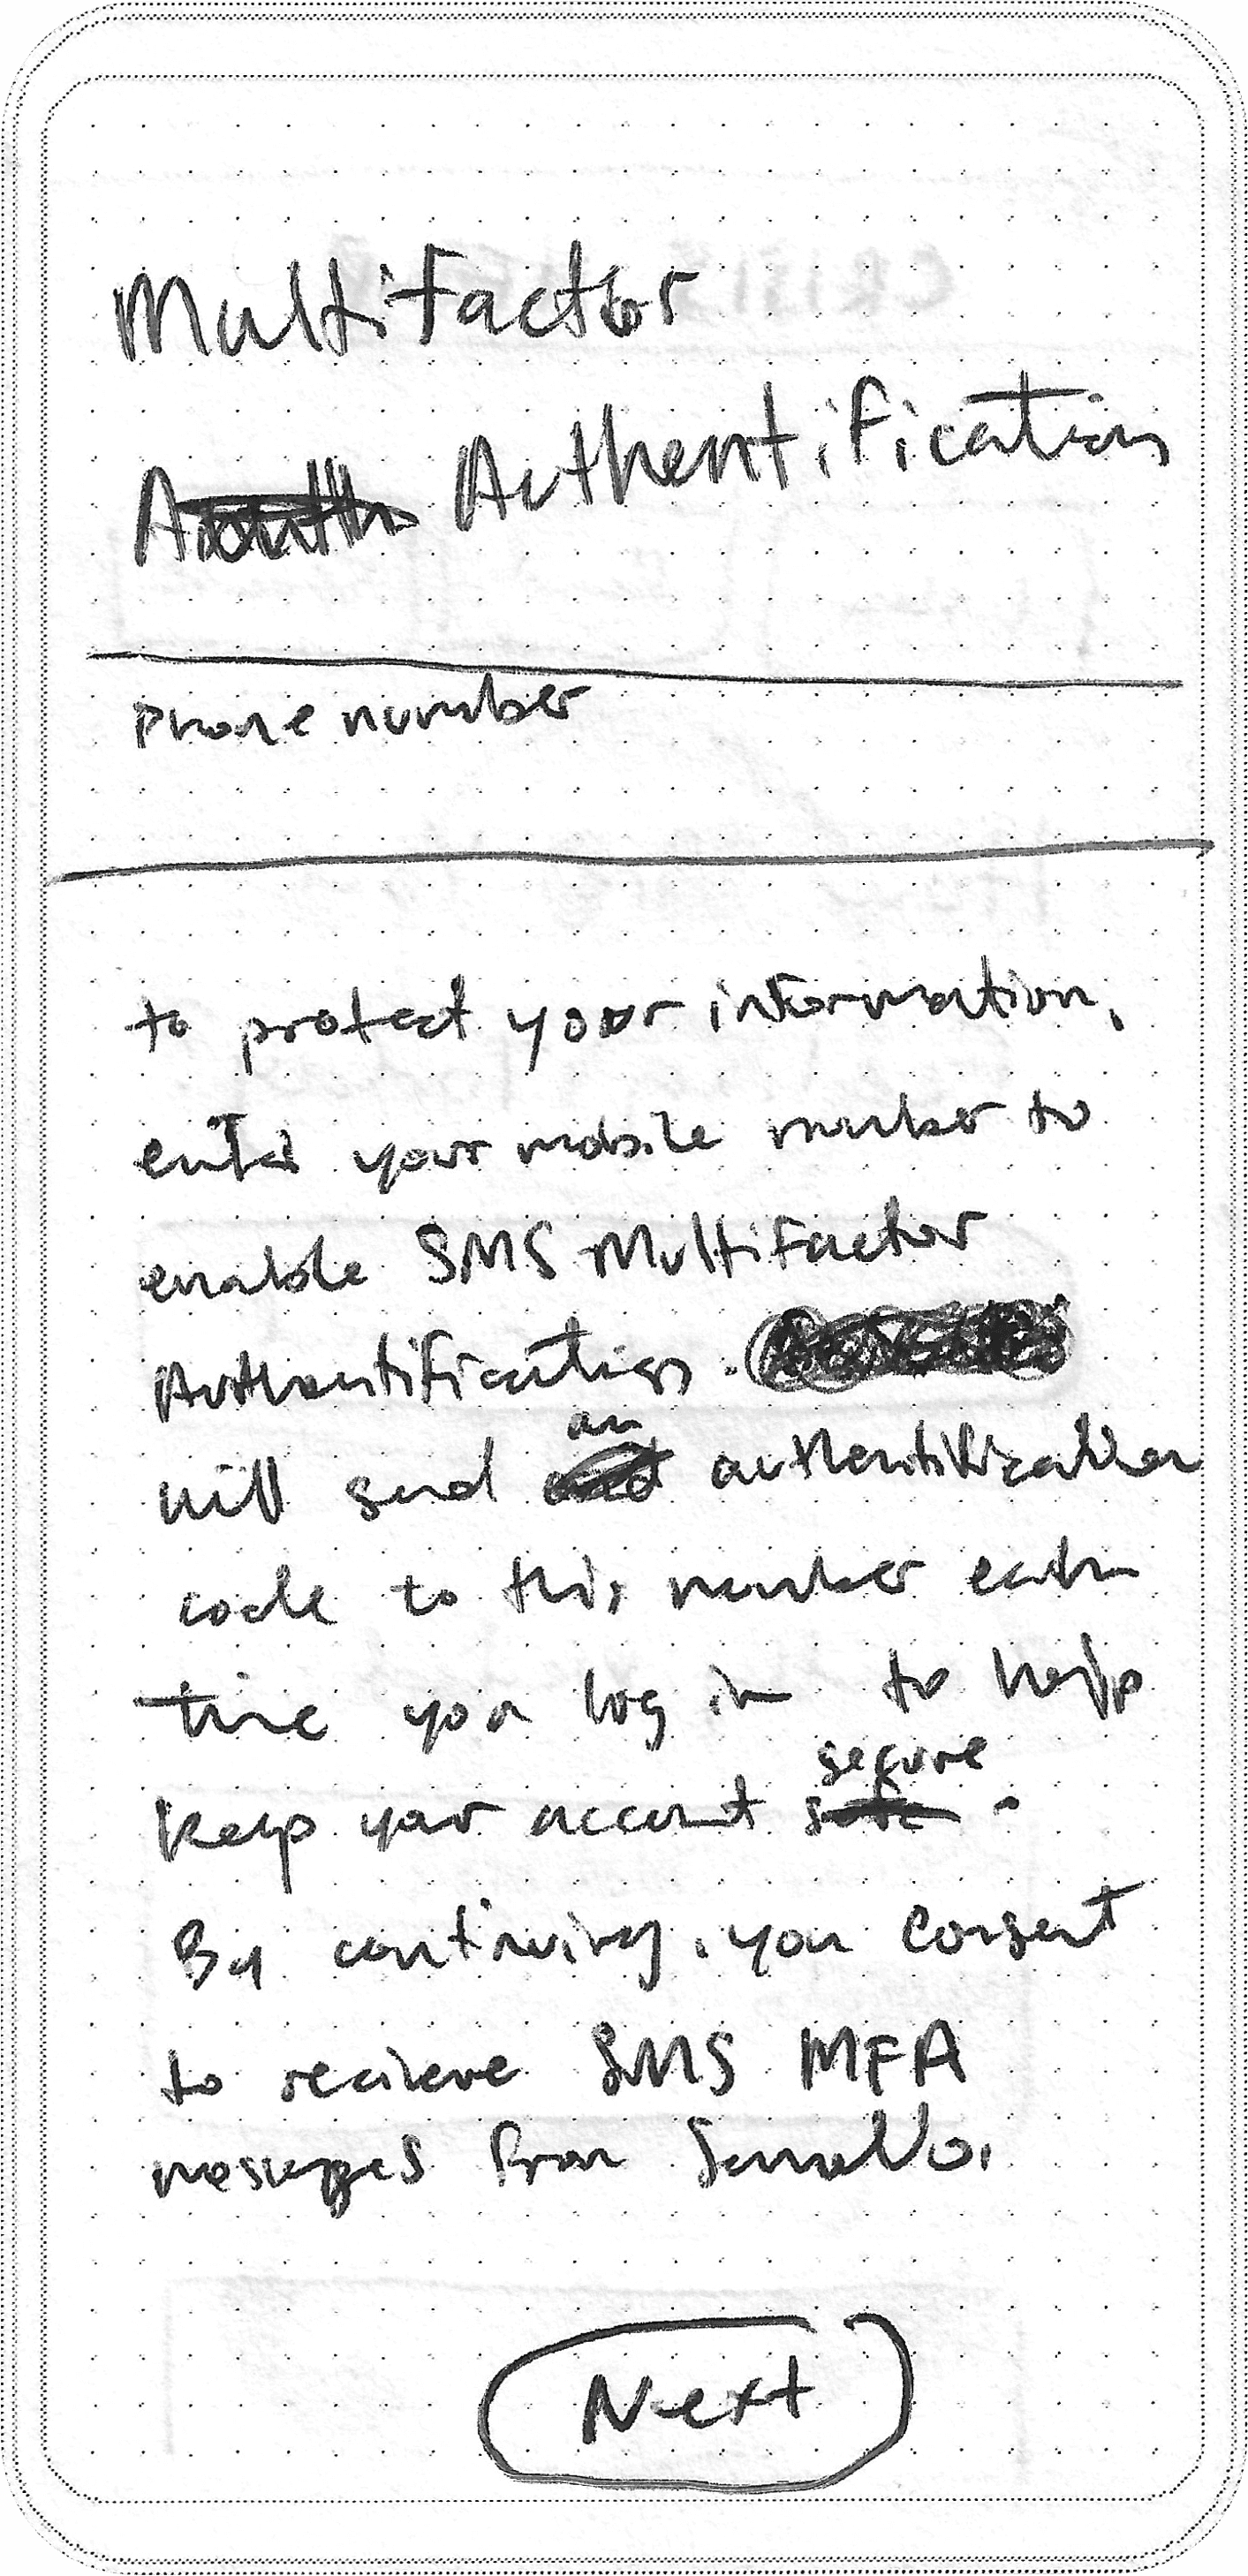 Multifactor
Authentification
Phone number
to protect your information,
enter your mobile number to
enable SMS Multifactor
Authentification.
will send an authentification
code to this number each
time you log in to help
keep your account secure.
By continuing, you consent
to recieve SMS MFA
messages from
Next